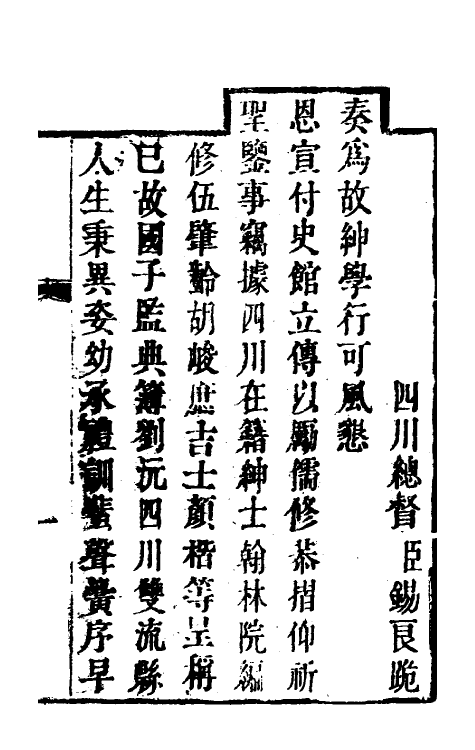 四川總督臣錫良跪
奏爲故紳學行可風懇
恩宣付史館立傳以勵儒修恭摺仰祈
聖鑒事竊據四川在籍紳士翰林院編
修伍肇齡胡峻庶吉士顏楷等呈稱
已故國子監典簿劉沅四川雙流縣
人生秉異姿幼承禮訓蜚聲黌序早
一